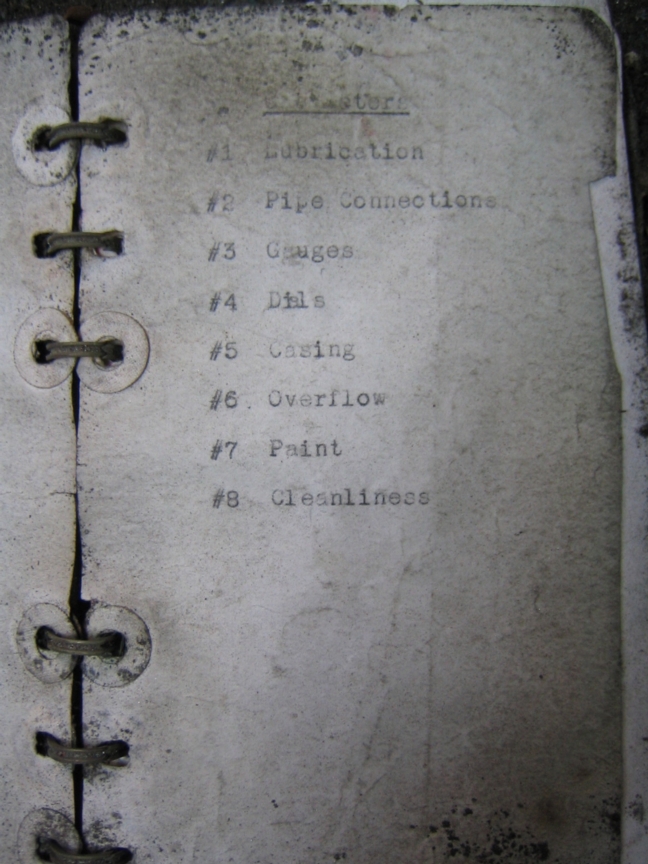 #1 Lubrication
#2 Pipe Connections
#3 Gauges
#4 Dils
#5 Casing
#6. Overflow
#7 Paint
#8 Cleanliness